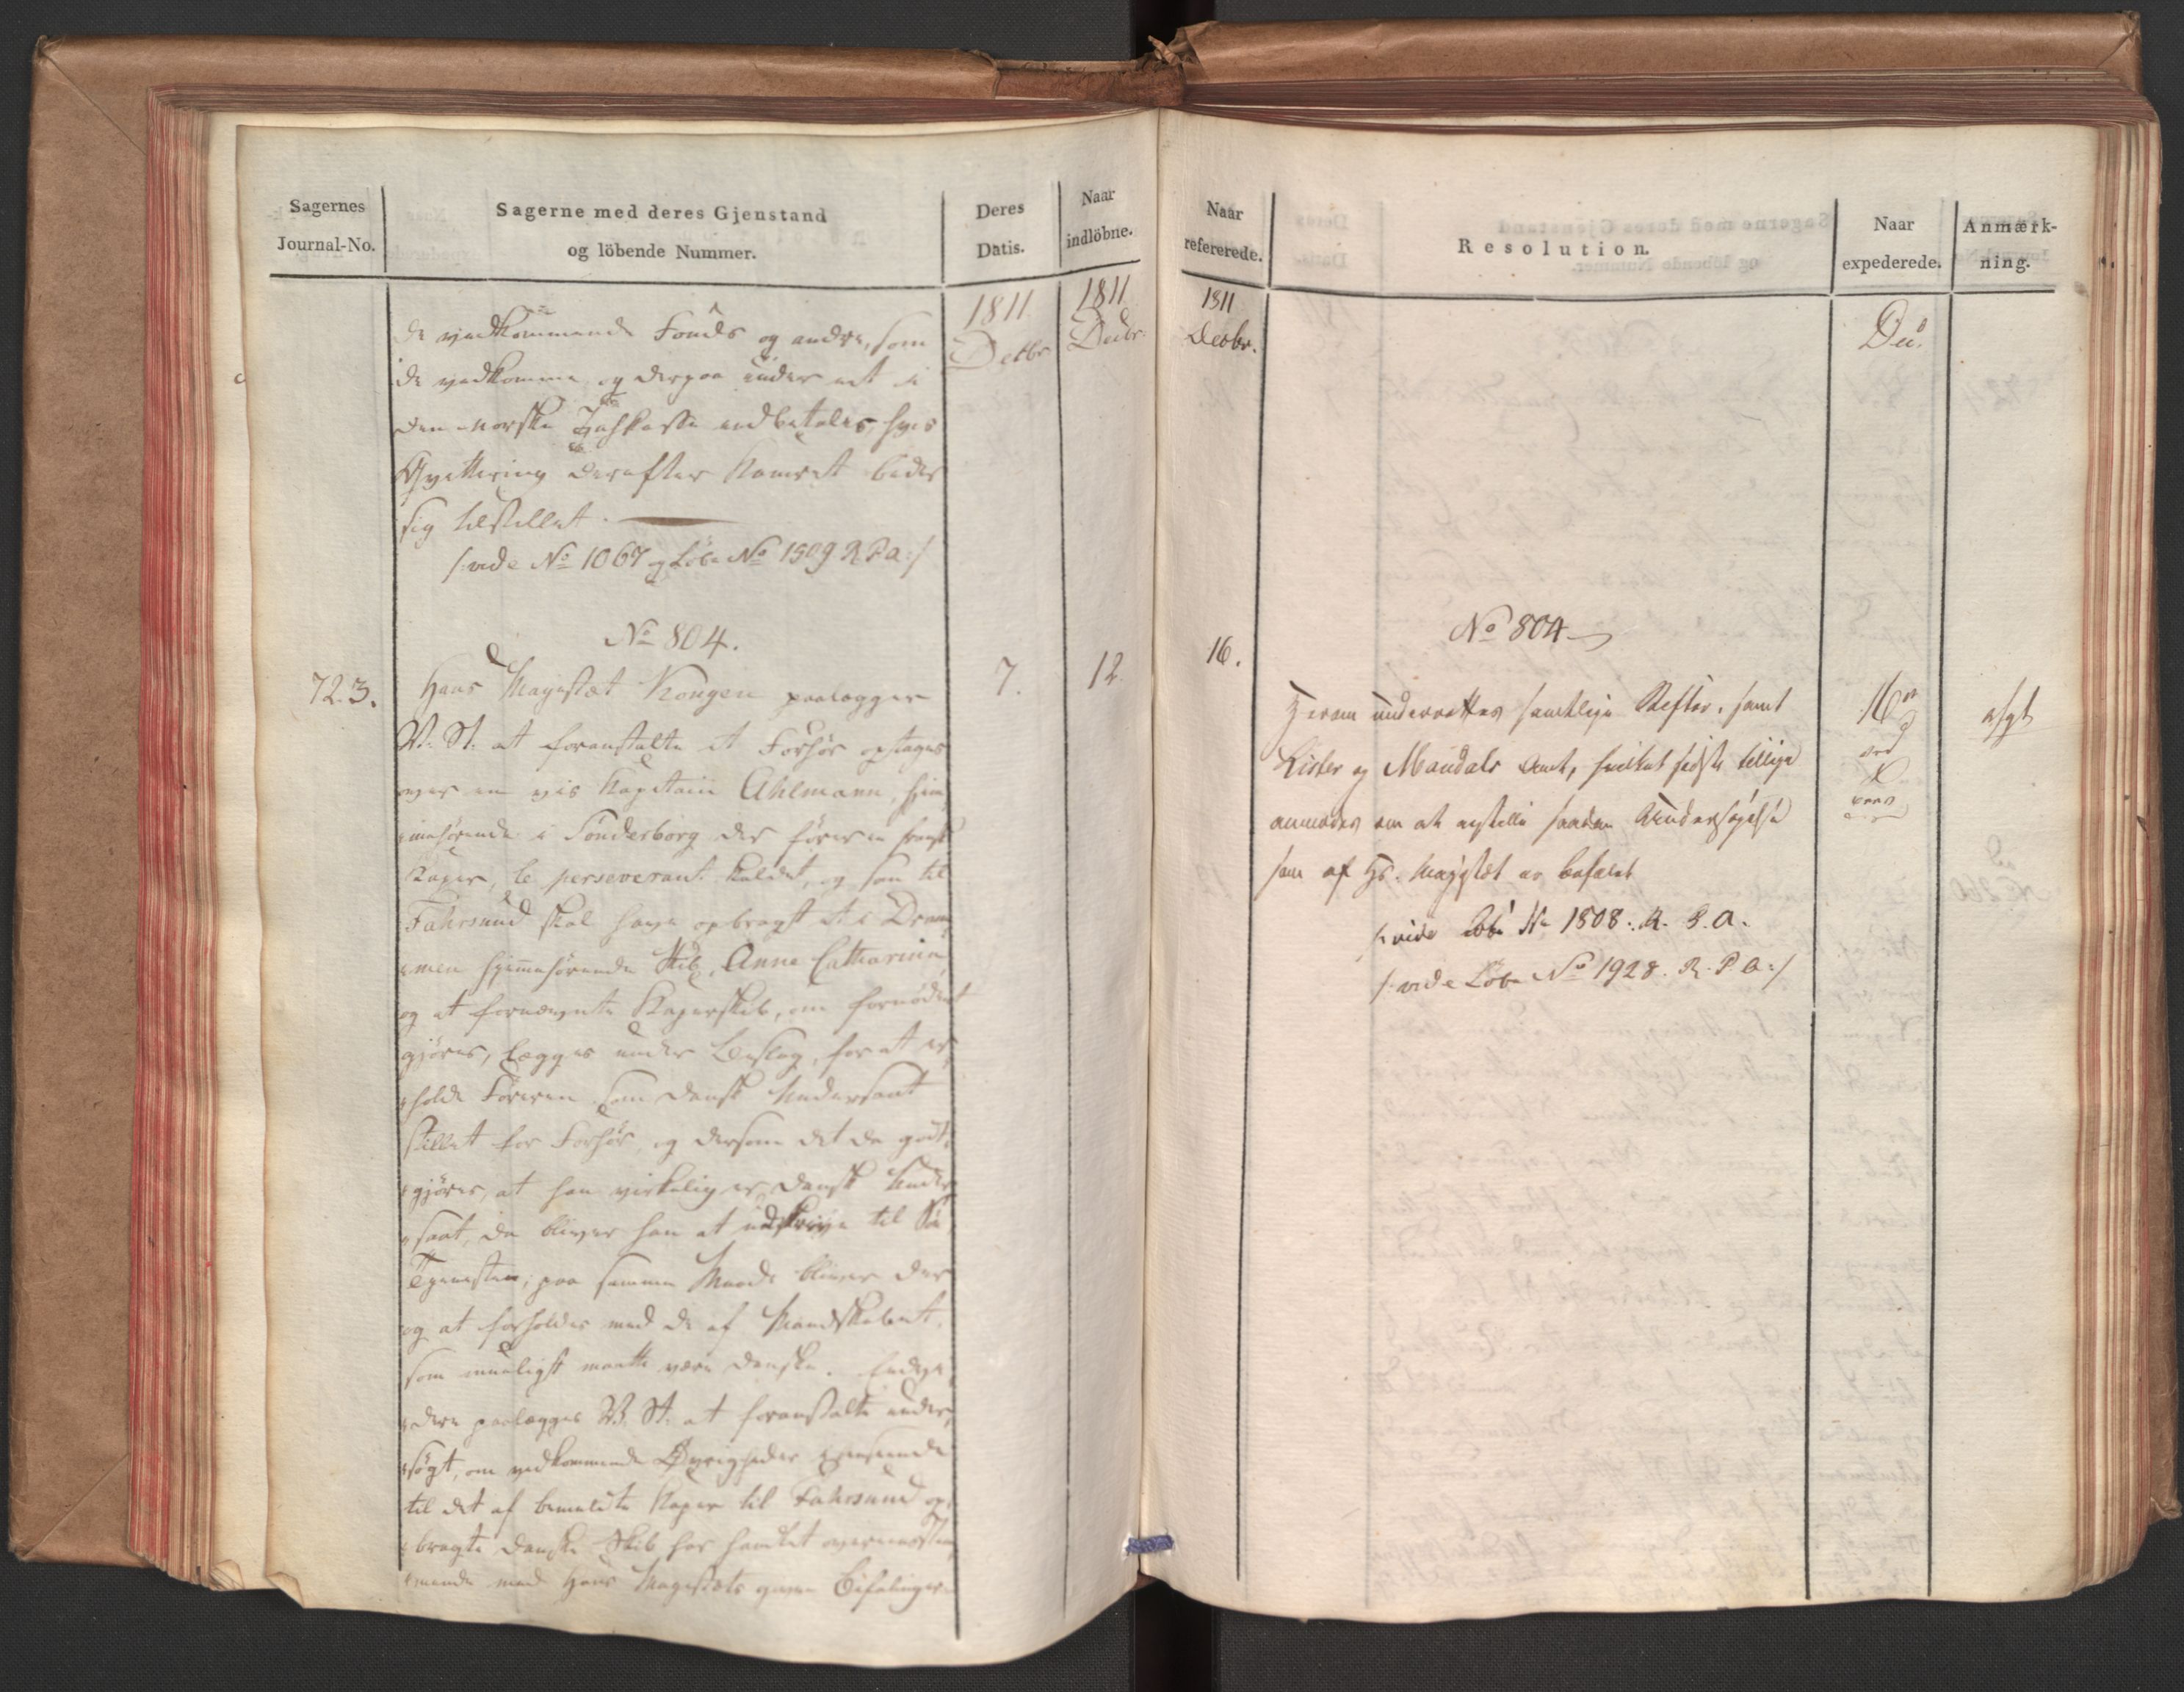 Sagernes
Journal-No.
Sagerne med deres Gjenstand
og löbende Nummer.
Deres
Datis.
Naar
indlöbne.
1811
Decbr
1811
Decbr:
de vedkommende Fonds og andre, som
de vedkomme og derpaa inden
den norske Zahlkasse indbetales, hvis
Qvittering derefter Kamret beder
sig tilstillet.
/: vide No 1067 og Löbe No 1509 R. P. a :/
No 804.
72.3.
7.
12.
Hans Majestæt Kongen paalægger
V: St: at foranstalte et Forhör optages
over en vis Kapitain Ahlmann, hjem
mehörende i Sönderborg der förer en fransk
Kaper, le perseverant kaldet, og som til
Fahrsund skal have opbragt et i Dram
men hjemmehörende Skib, Anna Catharina,
og at fornævnte Kaperskib, om fornödent
gjöres, lægges under Beslag, for at er
holde Föreren som dansk Undersaat
stillet for Forhör, og dersom det da godt
gjöres, at han virkelig er dansk Under
saat, da bliver han at udskrive til Sö
Tjenesten; paa samme Maade bliver der
og at forholdes med de af Mandskabet,
som mueligst maatte være danske. Endvi
dere paalægges V. St. at foranstalte under
sögt, om vedkommende Övrigheder henseende
til det af bemeldte Kaper til Fahrsund op
bragte danske Skib har handlet overeensstem
mende med Hans Majestæts givne Befalinger
Naar
refererede.
Resolution.
Naar
expederede.
Anmærk-
ning.
1811
Decbr.
16.
No 804
Herom underrettes samtlige Stiftor. samt
Lister og Mandals Amt, hvilket sidste tillige
anmodes om at anstille saadan Undersögelse
som af Hs. Majestæt er befalet
/: vide Löbe No 1508. R. P. A.
/: vide Löbe No 1928. R. P. A :/
16
afgt